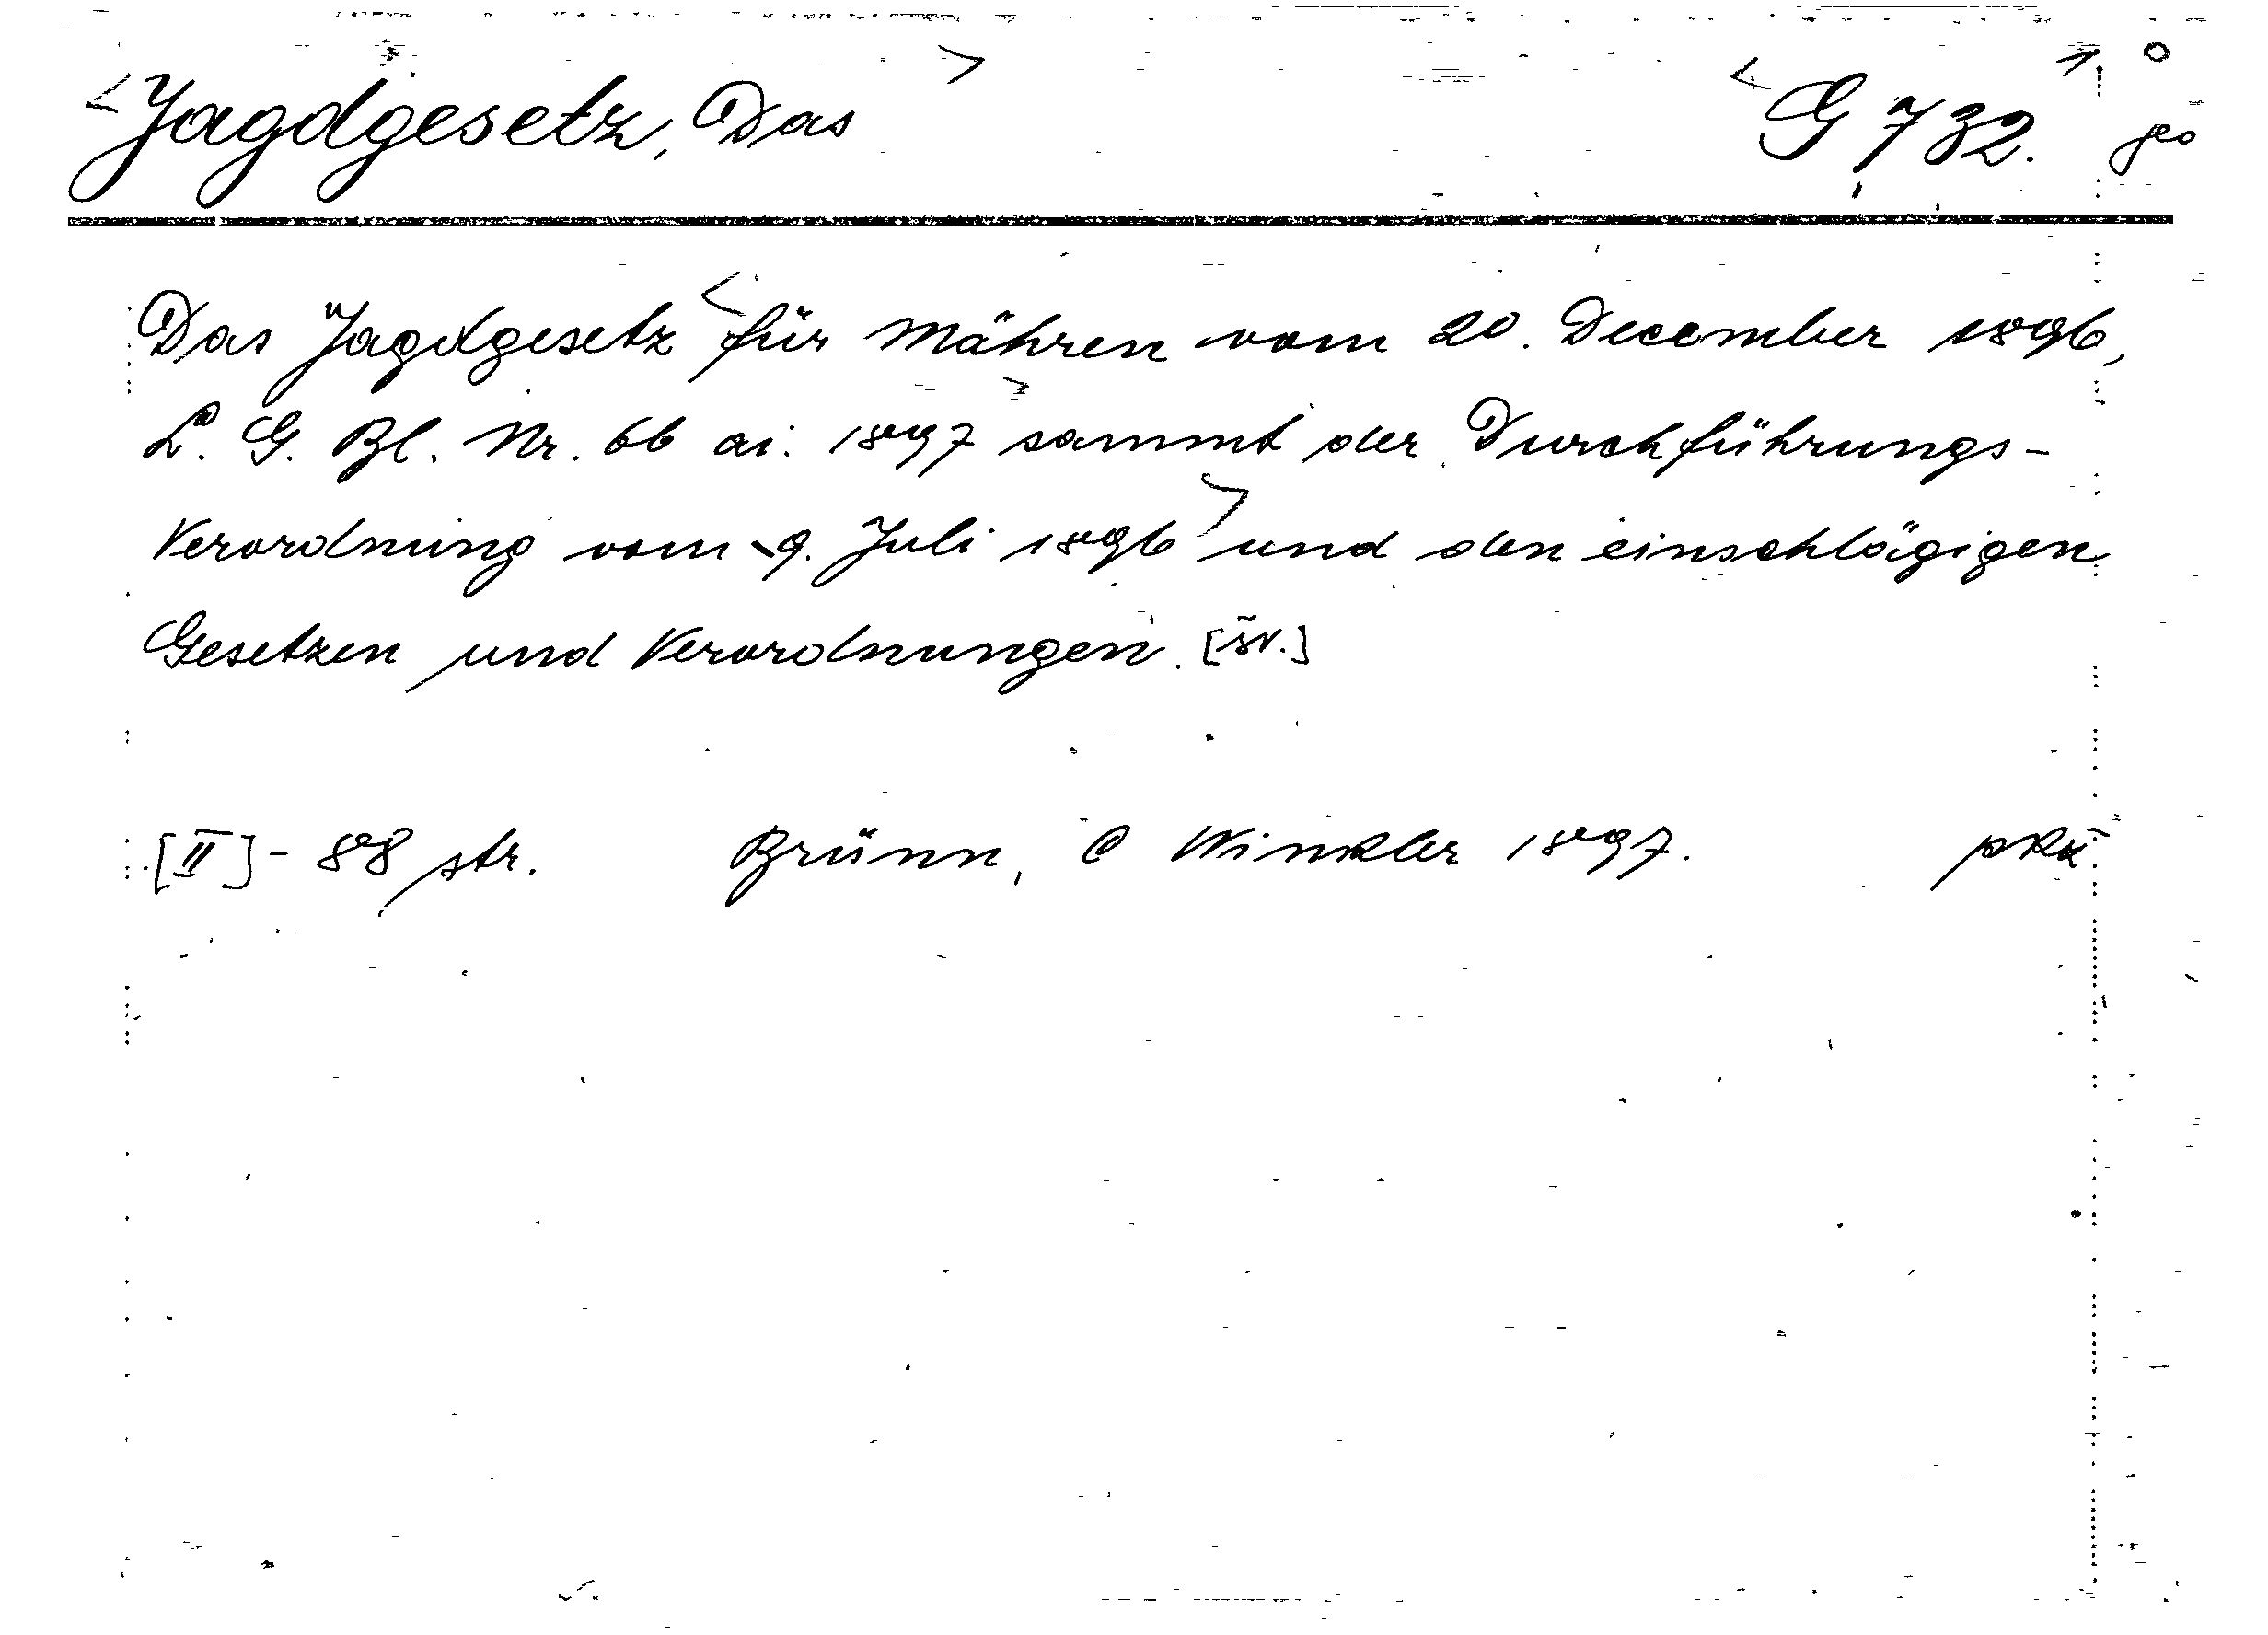 <Jagdgesetz, Das> <G 732. 1 o
geo
Das Jagdgesetz <für Mähren vom 20. December 1896,
L. G. Bl. Nr. 66 ai. 1897> sammt der Durchführungs-
Verordnung vom 9. Juli 1896> und den einschlägigen
Gesetzen und Verordnungen. [šv.]
[II] - 88 str. Brünn, C Winkler 1897.